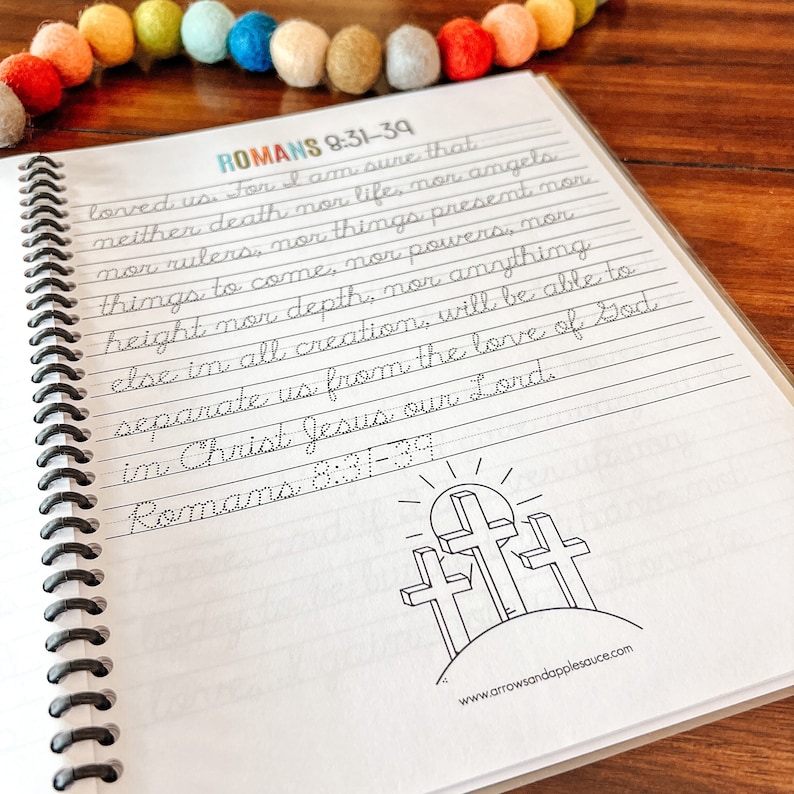 ROMANS 8:31-39
loved us. For I am sure that
neither death nor life, nor angels
nor rulers, nor things present nor
things to come, nor powers, nor
height nor depth, nor anything
else in all creation, will be able to
separate us from the love of God
in Christ Jesus our Lord.
Romans 8:31-39
www.arrowsandapplesauce.com